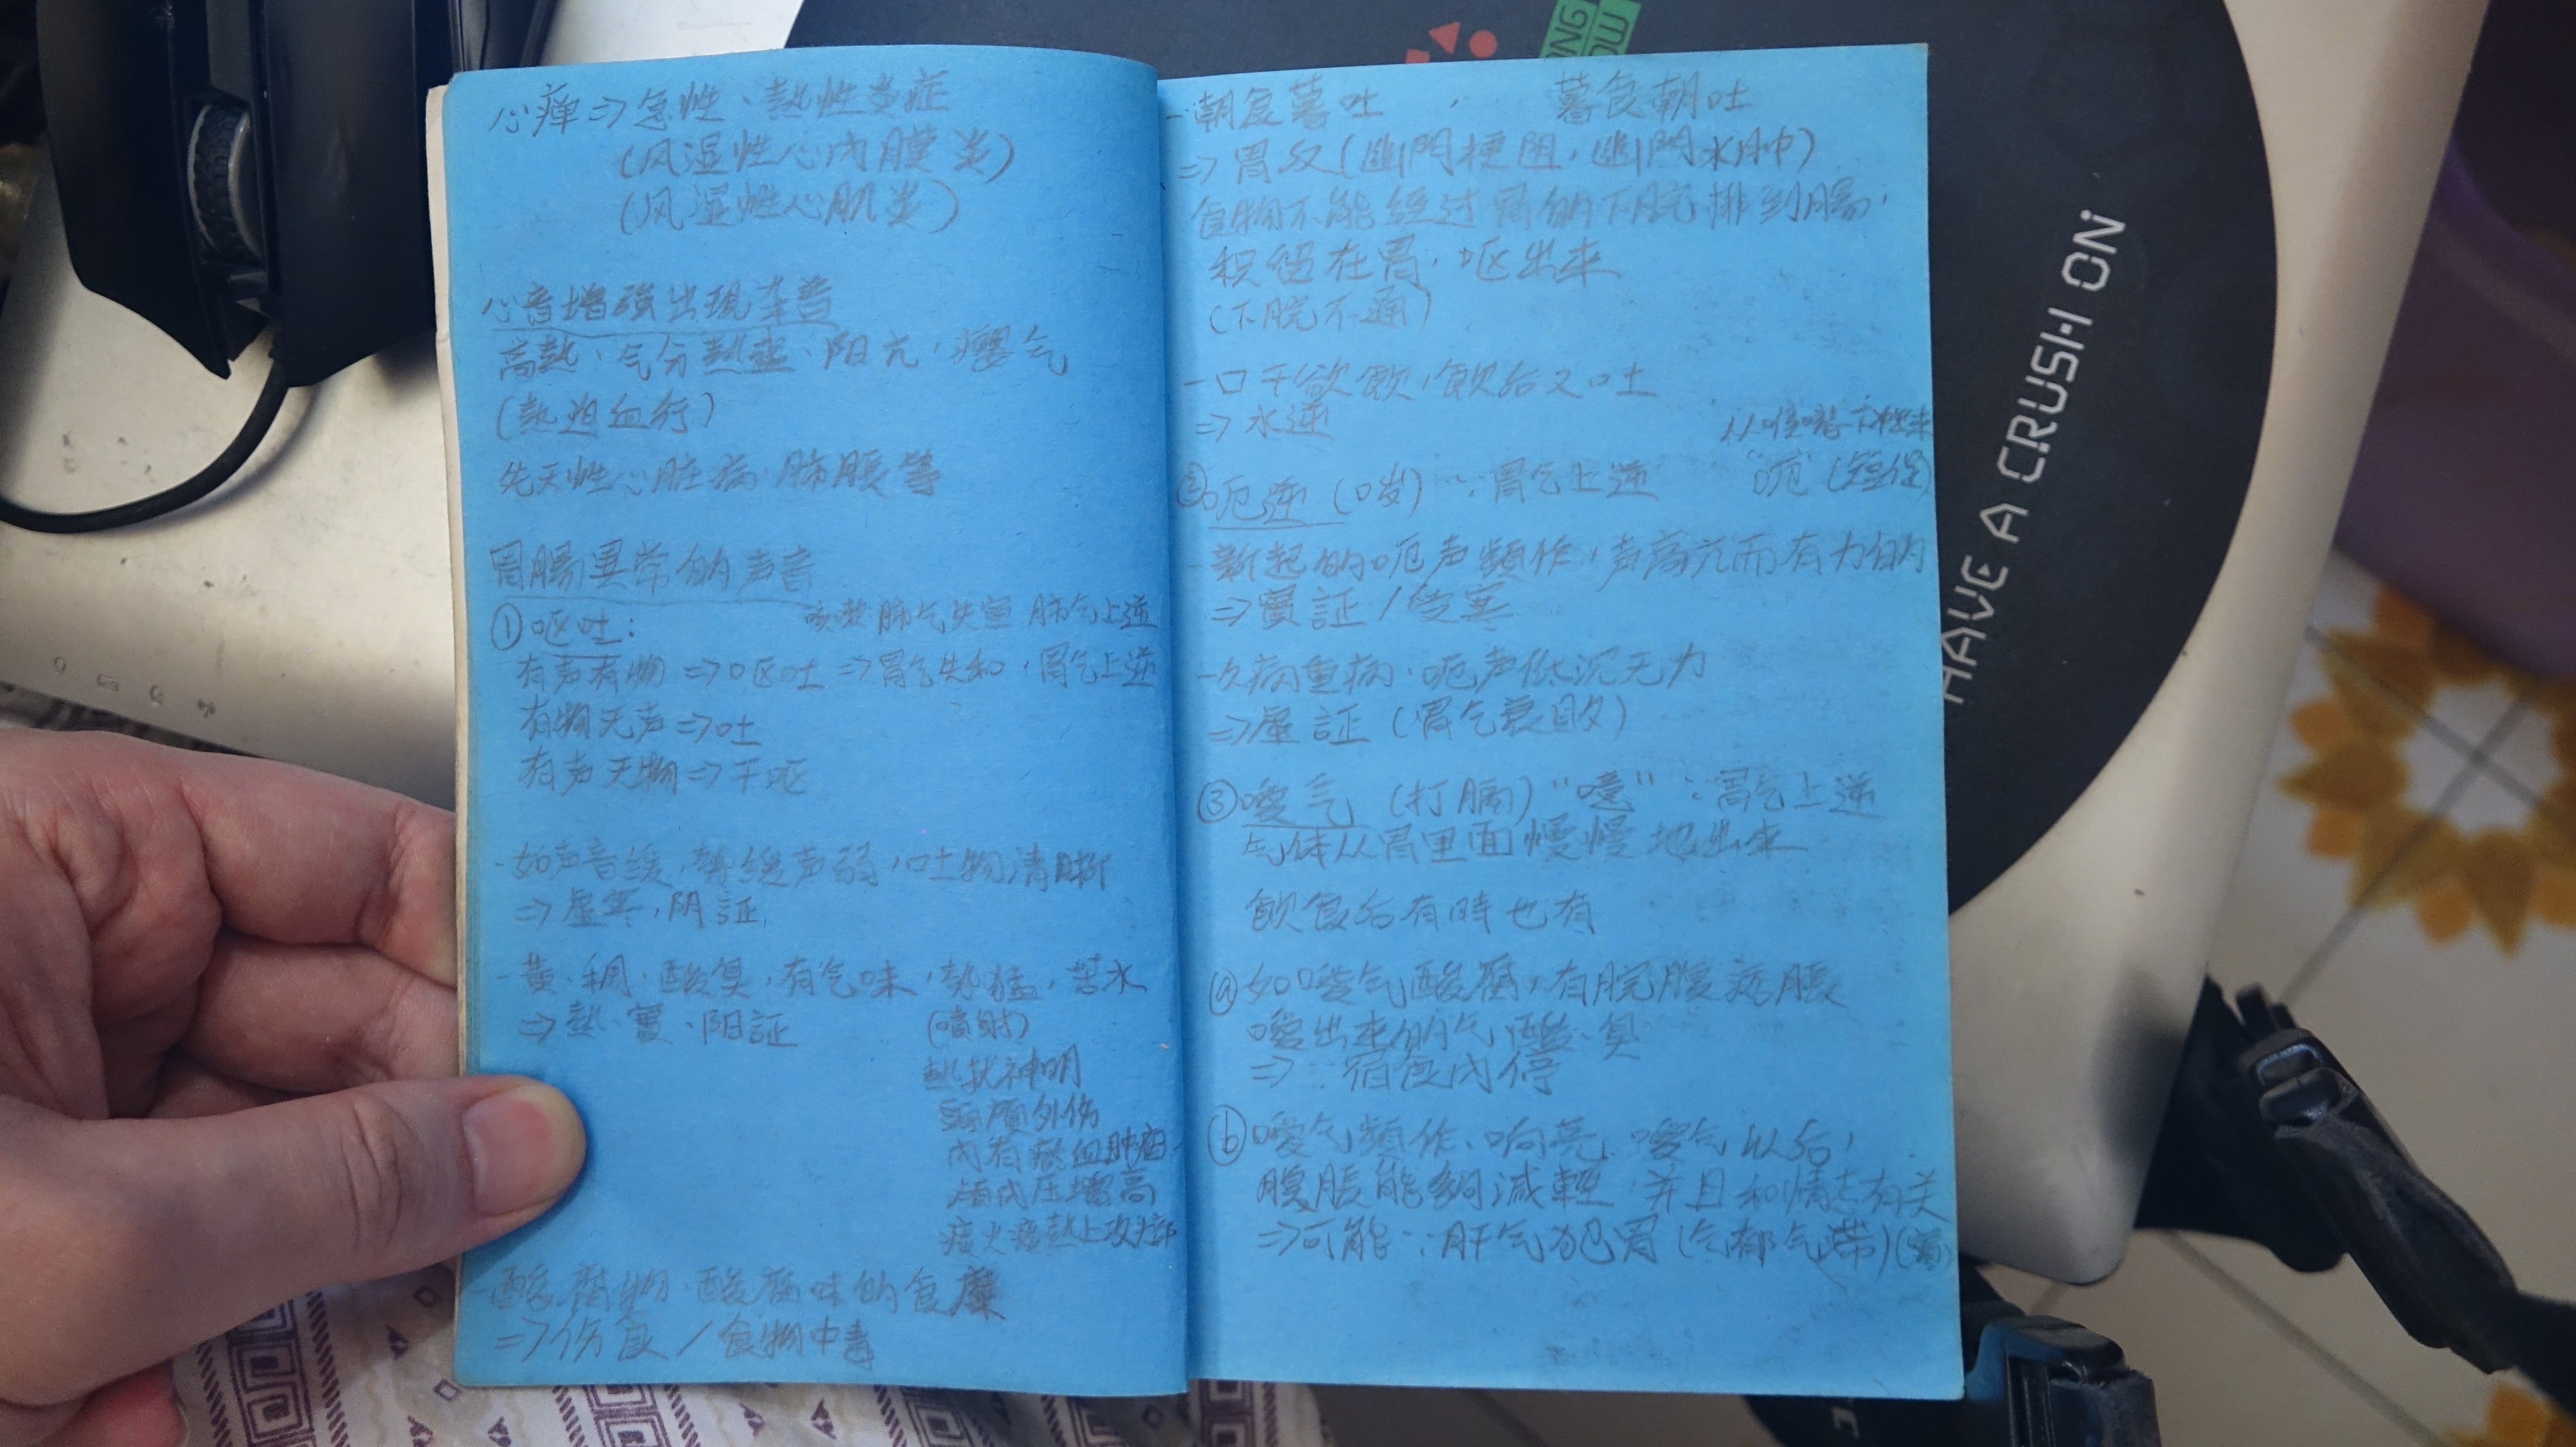 心痺⇒急性、熱性炎症
(风湿性心内膜炎)
(风湿性心肌炎)
心音增强出現杂音
高熱、气分熱盛、阳亢、癭气
(熱迫血行)
先天性心脏病、肺脹等
胃腸異常的声音
①呕吐:
咳嗽 肺气失宣 肺气上逆
有声有物⇒呕吐⇒胃气失和,胃气上逆
有物无声⇒吐
有声无物⇒干呕
-如声音缓,勢缓声弱,吐物清晰
⇒虛寒,阴証
-黃、稠、酸臭,有气味,勢猛,苦水
⇒熱、實、阳証
(噴射)
熱扰神明
頭顱外伤
内有瘀血肿瘤-
顱内压增高
痰火痰熱上攻
-酸腐物、酸腐味的食糜
⇒伤食/食物中毒
-朝食暮吐, 暮食朝吐
⇒胃反(幽門梗阻,幽門水肿)
食物不能经过胃的下脘排到腸,
积留在胃,呕出来
(下脘不通)
-口干欲飲,飲后又吐
⇒水逆
从喉嚨下
"呃"(短促)
②呃逆(口岁)∵胃气上逆
-新起的呃声頻作,声高亢而有力的
⇒實証/受寒
-久病重病,呃声低沉无力
⇒虛証(胃气衰敗)
③噯气(打嗝)"噫"∵胃气上逆
气体从胃里面慢慢地出来
飲食后有時也有
ⓐ如噯气酸腐,有脘腹病脹
噯出来的气酸、臭
⇒∵宿食内停
ⓑ噯气頻作、响亮,噯气以后,
腹脹能夠減輕,并且和情志有关
⇒可能∵肝气犯胃(气郁气滞)
HAVE A CRUSH ON